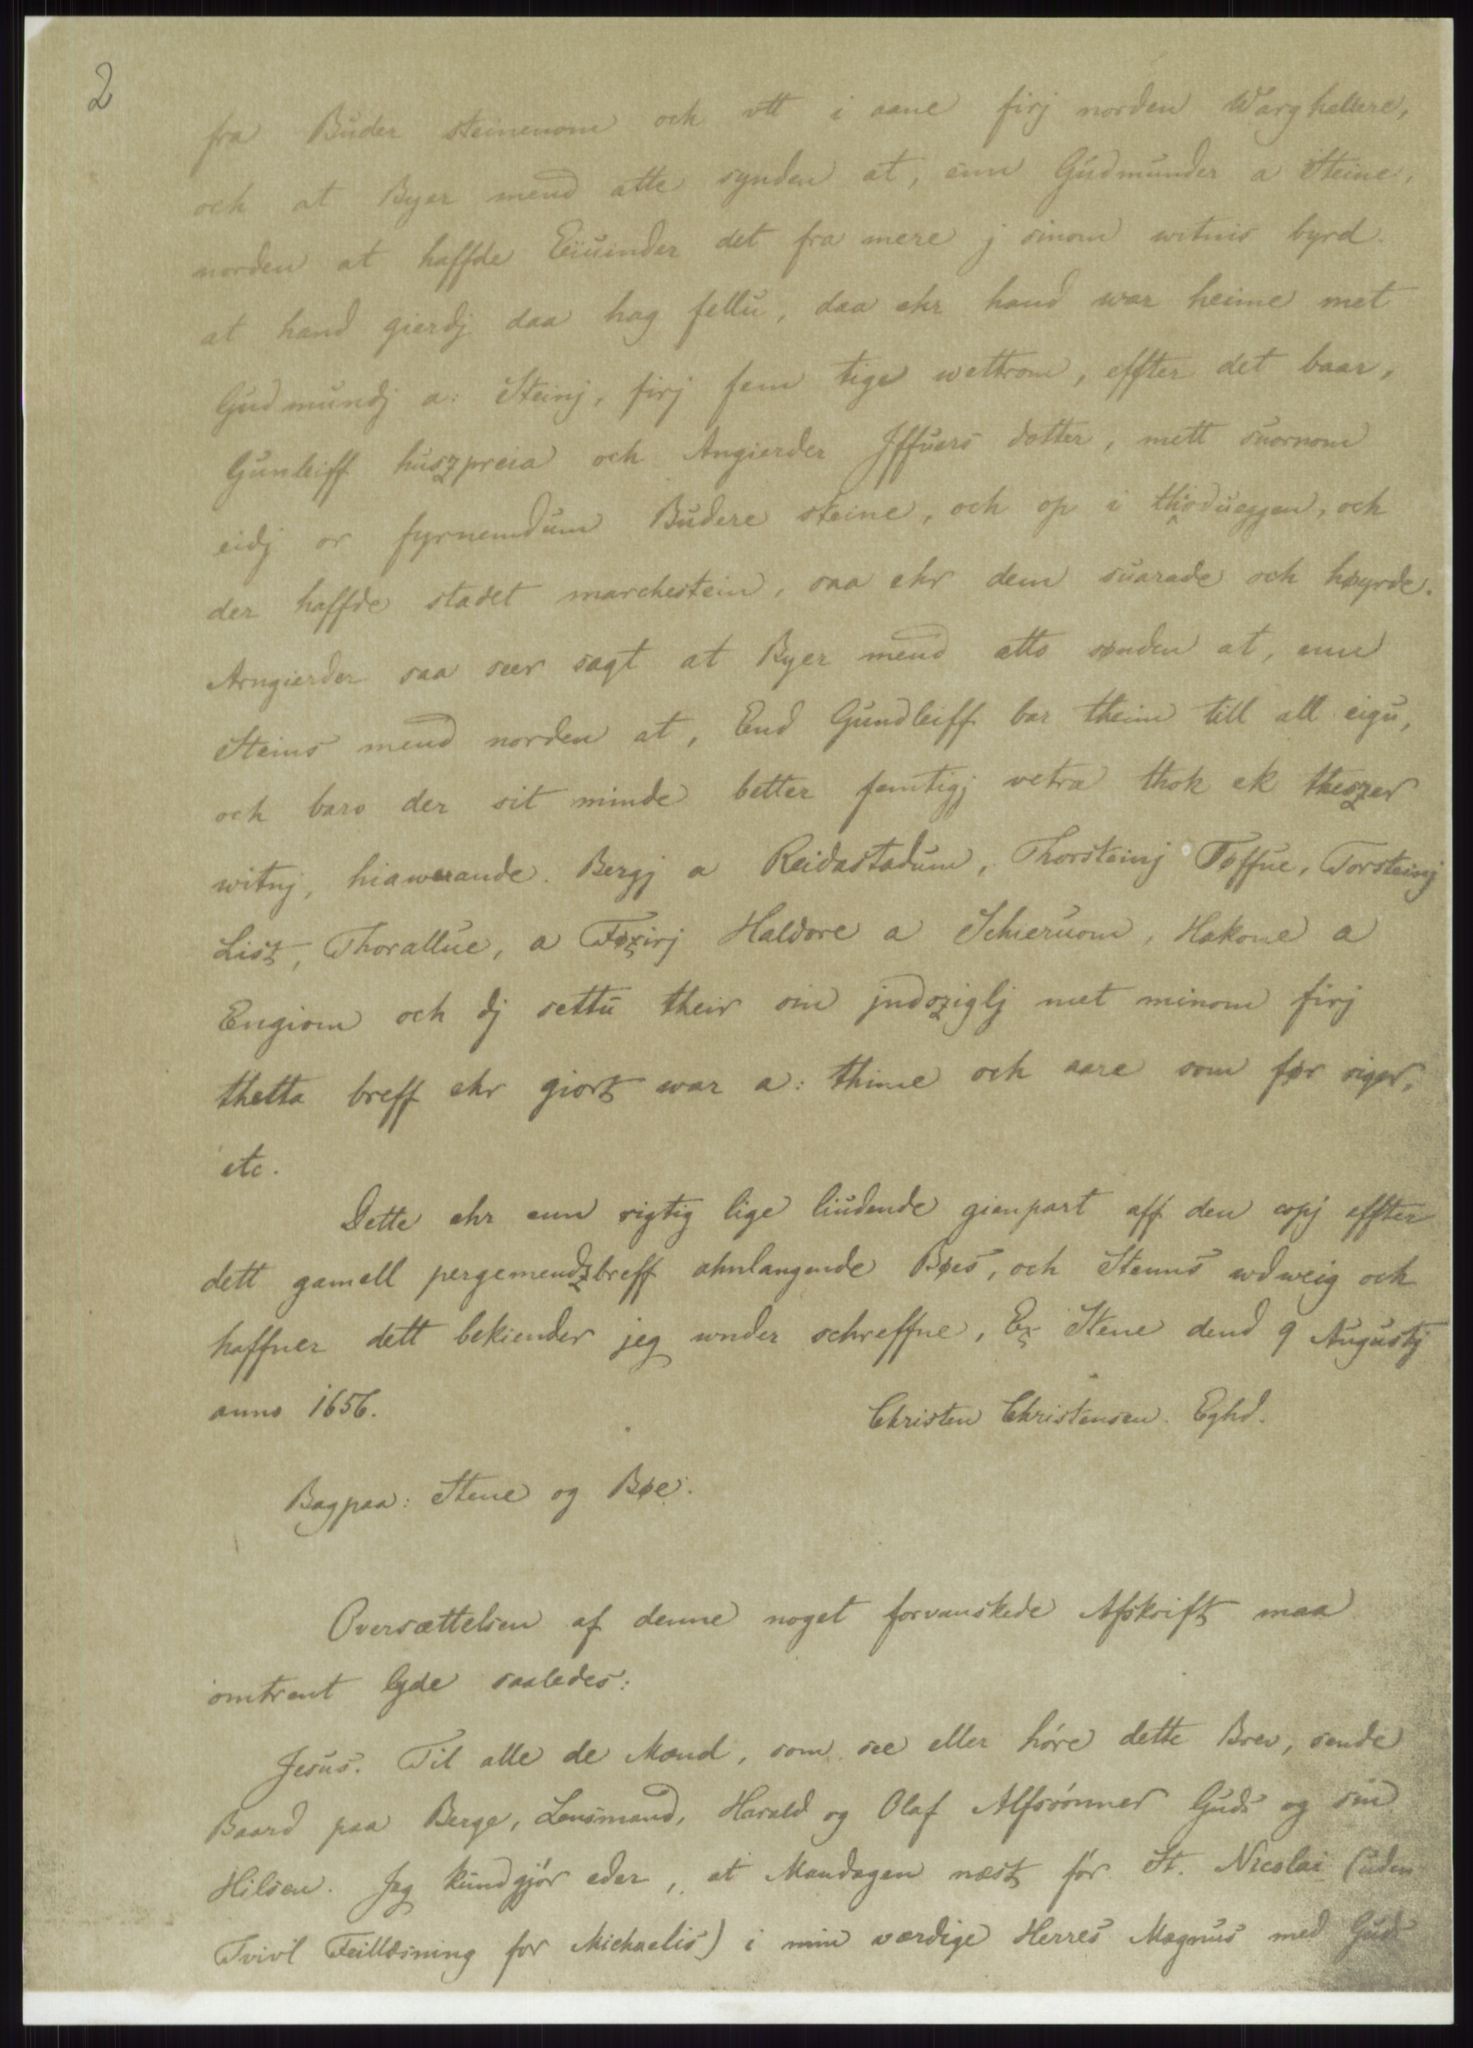 2
fra Buder steinenom och vtt i aane firj norden Warghellere,
och at Byer mend atte synden at, enn Gudmunder a Steine,
norden at haffde Eiuinder det fra mere j sinom witnis byrd.
at hand gierdj daa hag fellu, daa ehr hand war heime met
Gudmundj a: Steinj, firj fem tige wettrom, effter det baar,
Gunleiff huszpreia och Angierder Jffuers dotter, mett suornom
eidj or fyrnemdum Budere steine, och op i thiodueggen, och
der haffde stadet marchestein, saa ehr dem suarade och høyrde.
Arngierder saa seer sagt at Byer mend atto sønden at, enn
Steins mend norden at, End Gundleiff bar theim till all eigu,
och baro der sit minde better femtigj vetra thok ek theszer
witnj, hiawerande. Bergj a Reidastadum, Thorsteinj Toffue, Torsteinj
List, Thorallue, a Føzirj Haldore a Schieruom, Hakone a
Engiom och dj settu their sin jndsziglj met minom firj
thetta breff ehr giort war a: thime och aare som før siger,
etc.
Dette ehr enn rigtig lige liudende gienpart aff den copj effter
dett gamell pergemendzbreff ahnlangende Bøes, och Stenns udweig och
haffner dett bekiender jeg wnder schreffne, Ex Stene dend 9 Augustj
anno 1656.
Christen Christensen. Eghd.
Bagpaa: Stene og Bøe.
Oversættelsen af denne noget forvanskede Afskrift maa
omtrent lyde saaledes:
Jesus. Til alle de Mænd, som see eller høre dette Brev, sende
Baard paa Berge, Lensmand, Harald og Olaf Alfssønner Guds og sin
Hilsen. Jeg kundgjør eder, at Mandagen næst før St. Nicolai (uden
Tvivl Feillæsning for Michaelis) i min værdige Herres Magnus med Guds